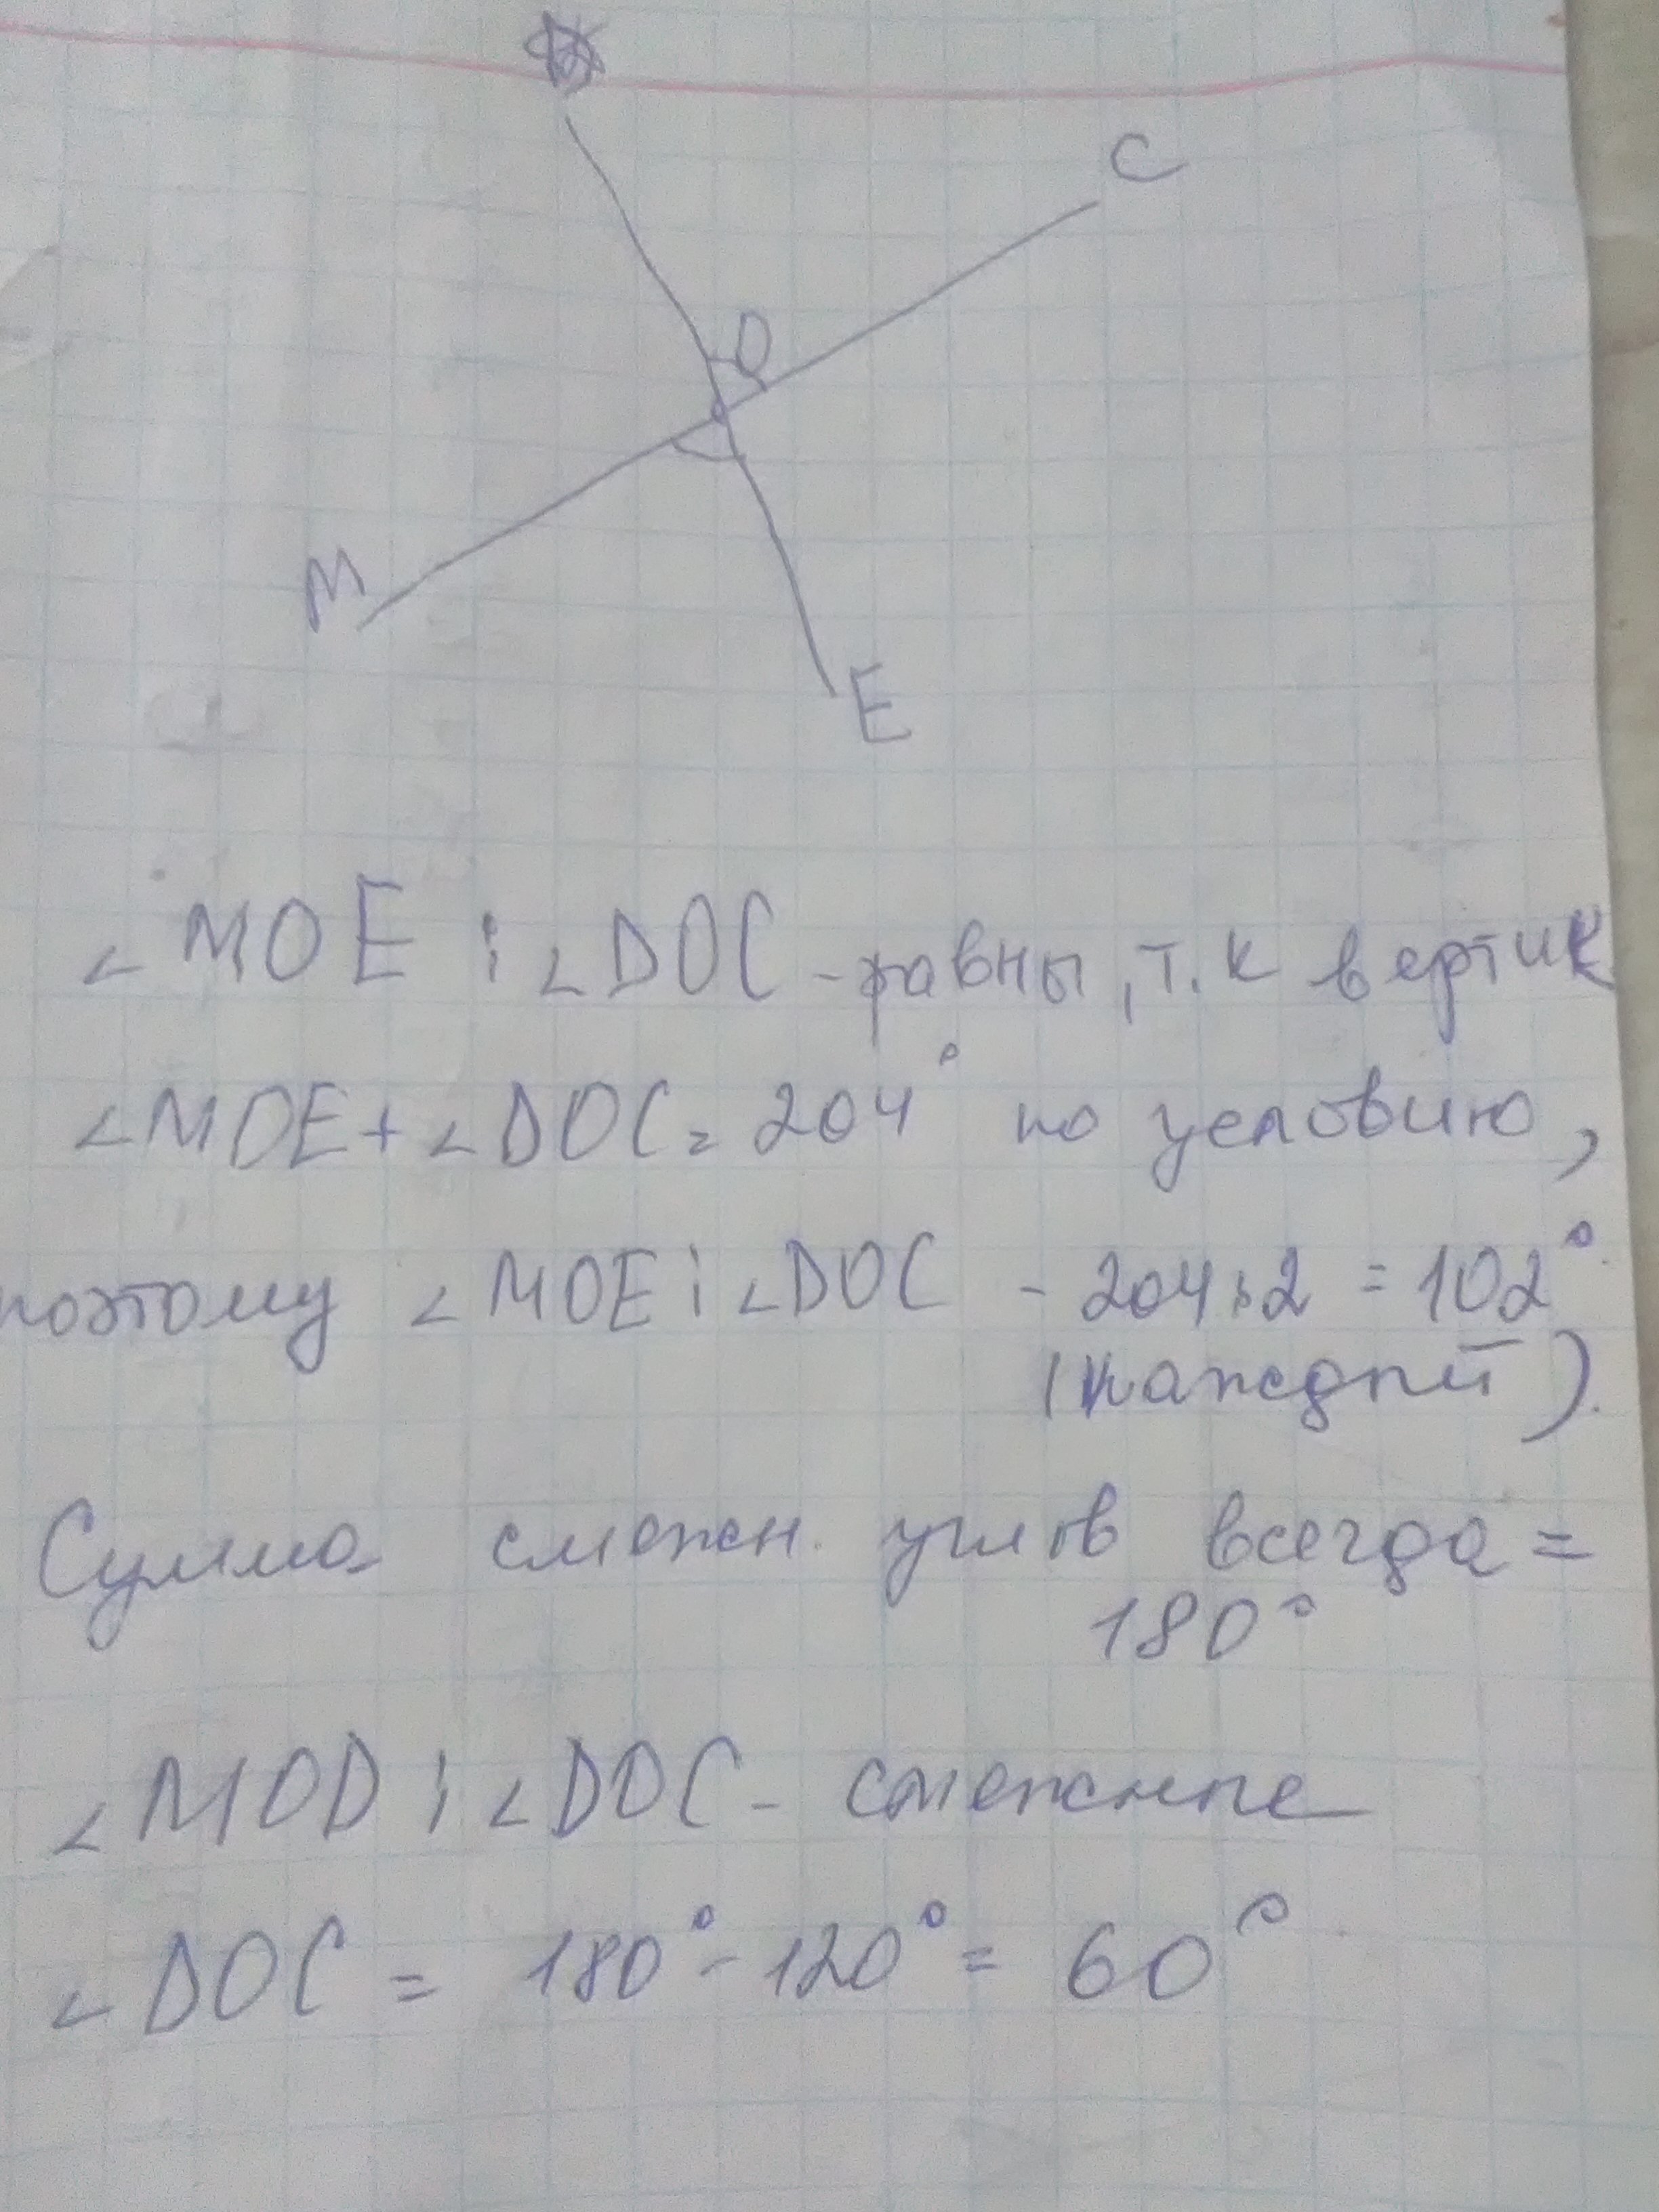 C
O
M
E
∠MOE i ∠DOC - равны, т.к вертик
∠MOE + ∠DOC = 204° по условию,
поэтому ∠MOE i ∠DOC - 204:2 = 102°
(каждый).
Сумма смежн. углов всегда =
180°
∠MOD i ∠DOC - смежные
∠DOC = 180° - 120° = 60°